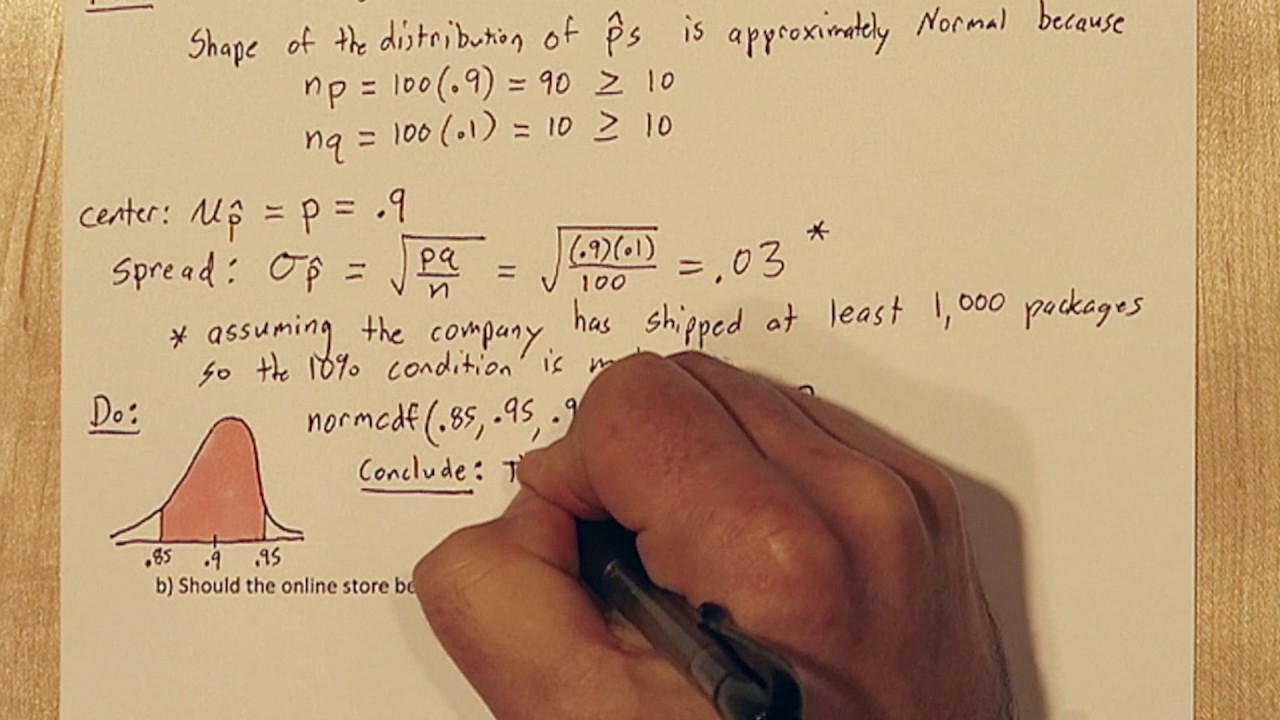 Shape of the distribution of p̂s is approximately Normal because
np = 100(.9) = 90 ≥ 10
nq = 100(.1) = 10 ≥ 10
center: μp̂ = p = .9
spread: σp̂ = √(pq/n) = √((.9)(.1)/100) = .03 *
* assuming the company has shipped at least 1,000 packages
so the 10% condition is
Do:
normcdf(.85, .95, .9
Conclude:
.85 .9 .95
b) Should the online store